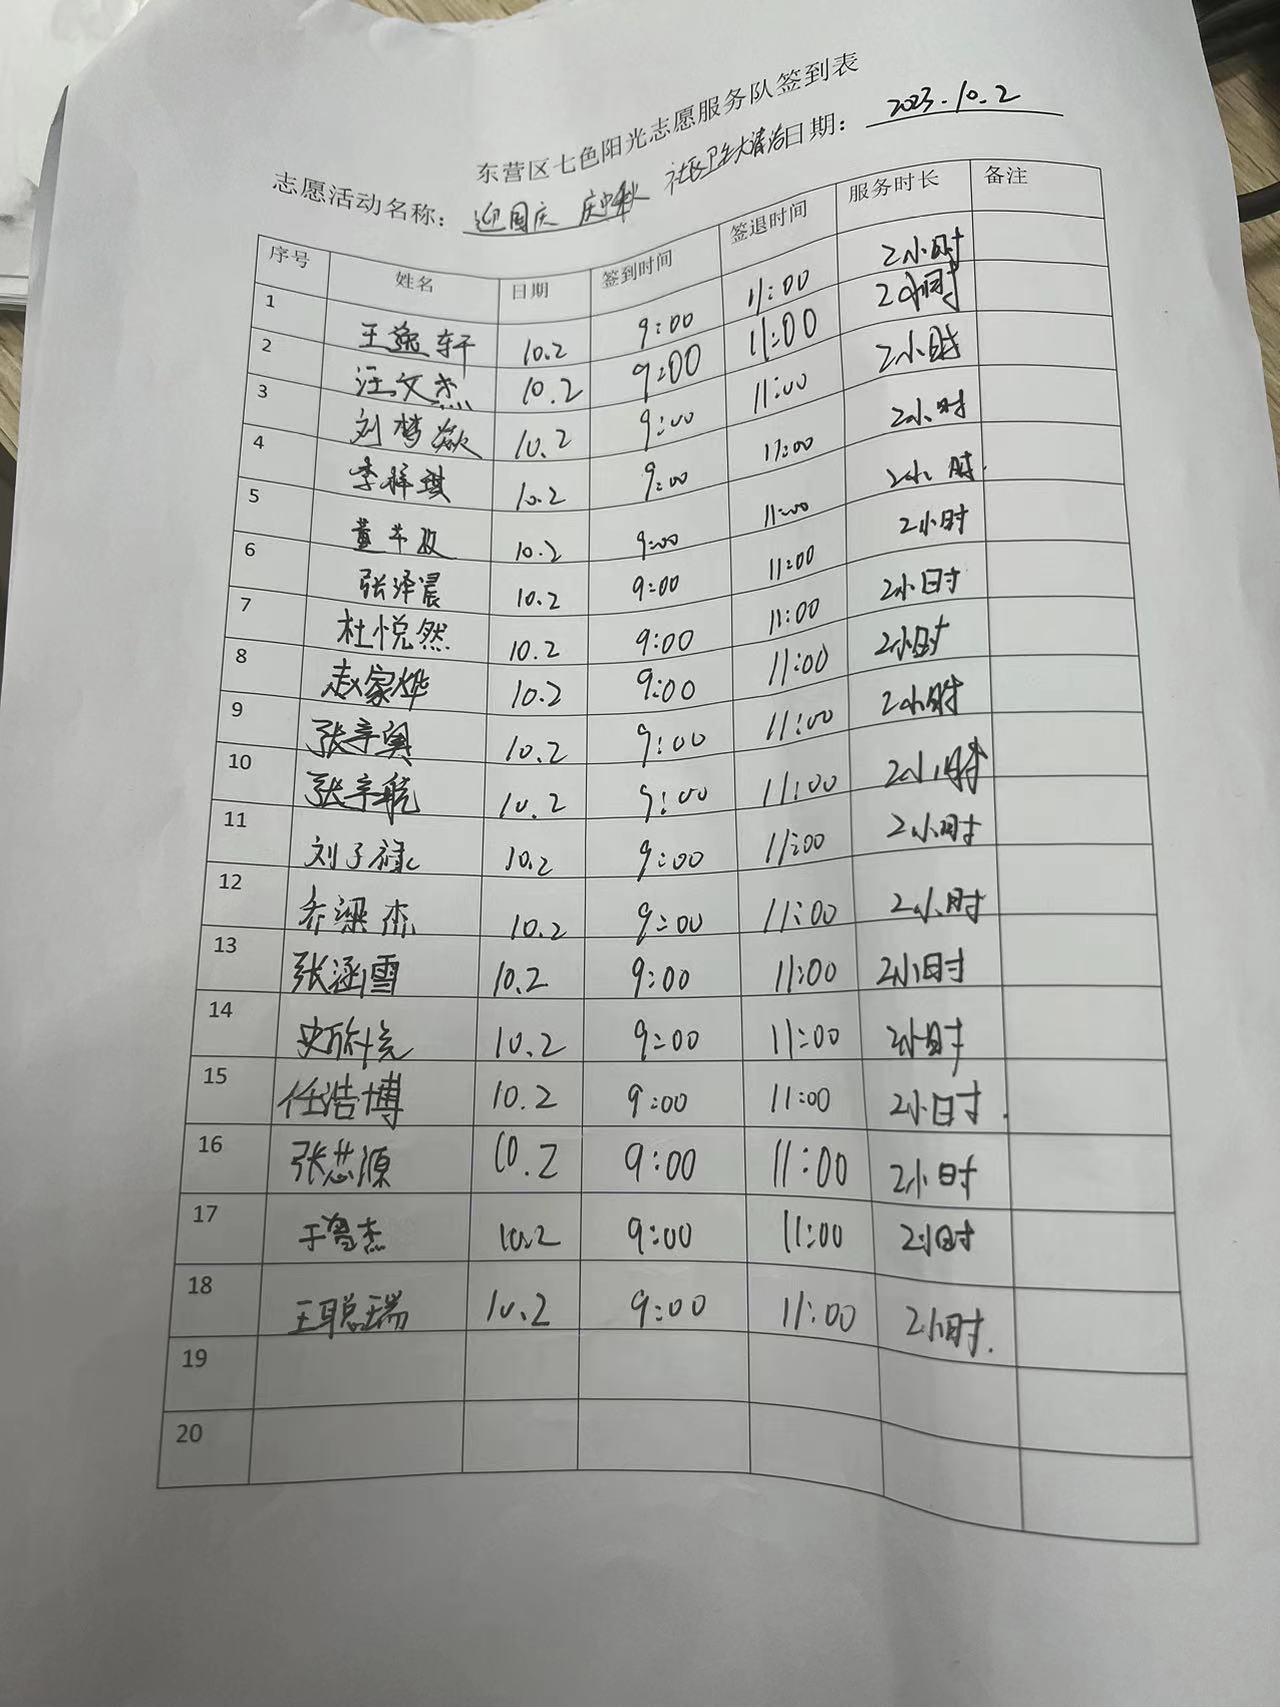 东营区七色阳光志愿服务队签到表
志愿活动名称：迎国庆 庆中秋 社区卫生大清洁日期：2023.10.2
序号 姓名 日期 签到时间 签退时间 服务时长 备注
1 王逸轩 10.2 9:00 11:00 2小时
2 汪文杰 10.2 9:00 11:00 2小时
3 刘梦 10.2 9:00 11:00 2小时
4 李梓琪 10.2 9:00 11:00 2小时
5 董 10.2 9:00 11:00 2小时
6 张泽晨 10.2 9:00 11:00 2小时
7 杜悦然 10.2 9:00 11:00 2小时
8 赵家烨 10.2 9:00 11:00 2小时
9 张宇奥 10.2 9:00 11:00 2小时
10 张宇航 10.2 9:00 11:00 2小时
11 刘子禄 10.2 9:00 11:00 2小时
12 乔梁杰 10.2 9:00 11:00 2小时
13 张涵雪 10.2 9:00 11:00 2小时
14 史 10.2 9:00 11:00 2小时
15 任浩博 10.2 9:00 11:00 2小时
16 张芯源 10.2 9:00 11:00 2小时
17 于鲁杰 10.2 9:00 11:00 2小时
18 王聪瑞 10.2 9:00 11:00 2小时.
19
20